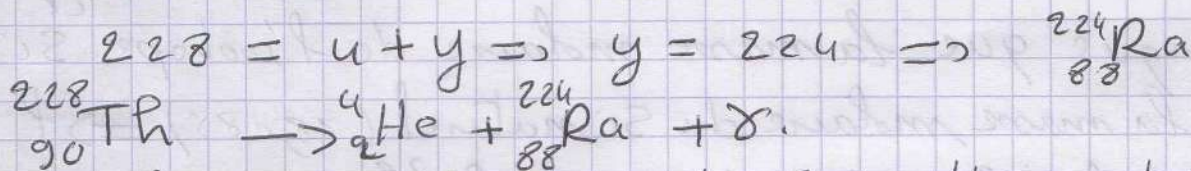 228 = 4 + y => y = 224 => ²²⁴₈₈Ra
²²⁸₉₀Th → ⁴₂He + ²²⁴₈₈Ra + γ.